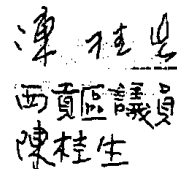 陳桂生
西貢區議員
陳桂生